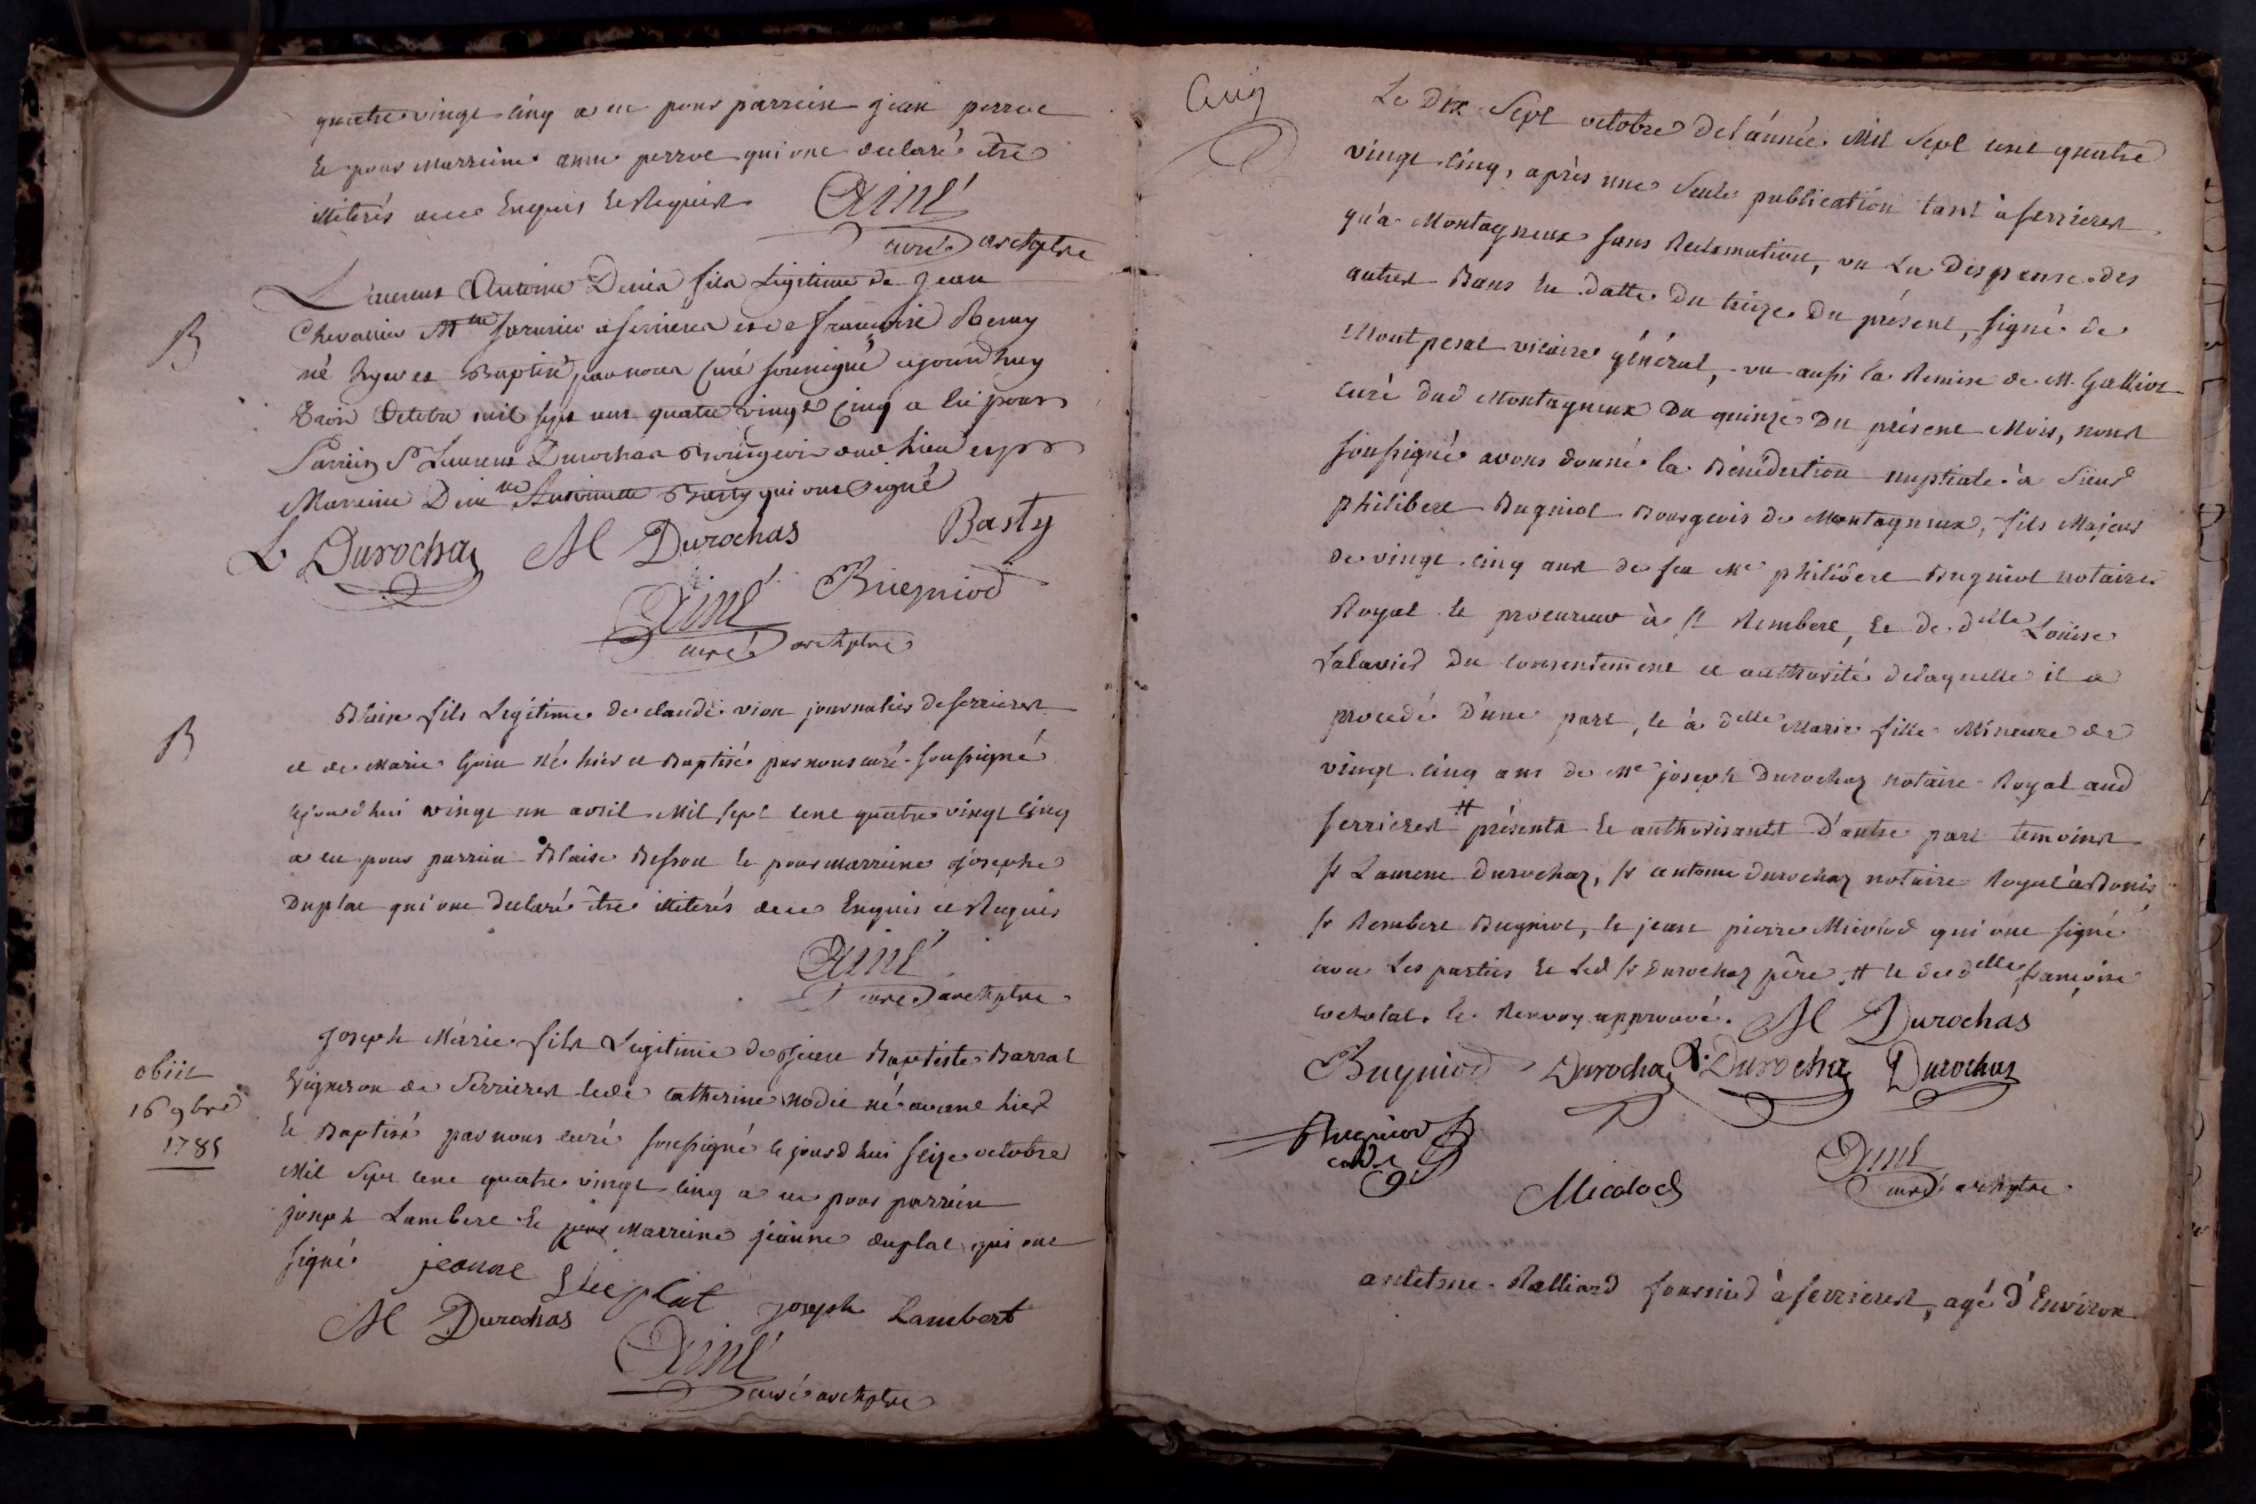 quatre vingt cinq a eu pour parrein jean perrot
et pour marreine anne perrot qui ont declaré être
illiterés de ce Enquis et Requist
Aimé
curé archptre
Laurent Antoine Denis fils Légitime de Jean
B
Chevallier Me à serrieres et de françoise Remy
né hyer et Baptisé par nous Curé soussigné cejourdhuy
trois Octobre mil sept cent quatre vingt Cinq a Eu pour
Parrein Sr Laurent Durochas Bourgeois dud lieu et pr
Marreine Dme Antoinette Basty qui ont signé
L. Durochaz M Durochas Basty
Aimé Bugniod
curé archptre
B
Blaise fils Legitime de claude vion journalier de serrieres
et de marie Goin né hier et Baptisé par nous curé soussigné
cejourd'hui vingt un avril Mil sept cent quatre vingt cinq
a eu pour parrein Blaise Besson et pour marreine josephe
Duplat qui ont declaré être illiterés de ce Enquis et Requis
Aimé
curé archptre
obiit
16 9bre
1785
Joseph Marie fils Legitime de Jean Baptiste Barrat
Vigneron de Serrieres et de catherine nodie né avant hier
et Baptisé par nous curé soussigné cejourd'hui seize octobre
Mil Sept cent quatre vingt cinq a eu pour parrein
joseph Lambert et pour Marreine jeanne duplat qui ont
signé jeanne Dueplat
M Durochas joseph Lambert
Aimé
curé archptre
Le Dix Sept octobre de l'année Mil Sept cent quatre
vingt cinq, après une seule publication tant à serrieres
qu'à Montagneux sans Reclamation, vu La Dispense des
autres Bans en datte du treize du présent, signé de
Montpesat vicaire général, vu aussi la Remise de M. Galliot
curé dud Montagneux du quinze du présent Mois, nous
soussigné avons donné la Bénédiction nuptiale à sieur
philibert Bugniot Bourgeois de Montagneux, fils Majeur
de vingt cinq ans de feu Me philibert Bugniot notaire
Royal et procureur à St Rembert, et de dlle Loüise
Lalavier du consentement et authorité delaquelle il a
procedé d'une part, et à delle Marie fille Mineure de
vingt cinq ans de Me joseph Durochaz notaire Royal aud
serrieres # présents et authorisants d'autre part temoins
sr Laurent Durochaz, sr antoine Durochaz notaire Royal à
sr Rembert Bugniot, et jean pierre qui ont signé
avec Les parties et Led sr Durochaz père # et de delle françoise
cochelat. le Renvoy approuvé. M Durochas
Bugniod Durochaz L. Durochaz Durochaz
Bugniod
Aimé
curé archptre
antelme Ralliard fournier à serrieres, agé d'Environ